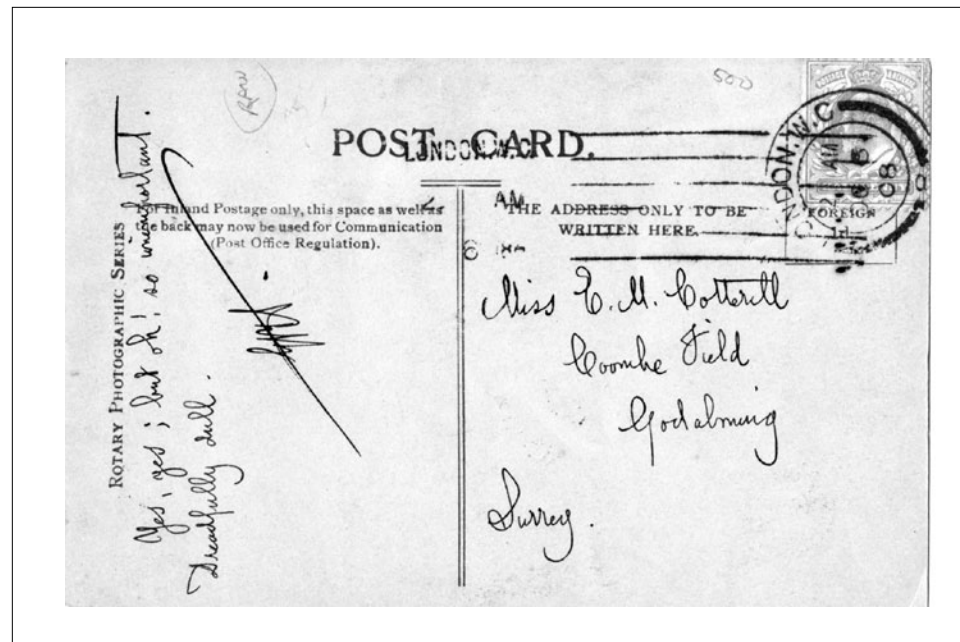 500
POST CARD.
LONDON.W.C
LONDON.W.C
AM
08
For Inland Postage only, this space as well as
the back may now be used for Communication
(Post Office Regulation).
THE ADDRESS ONLY TO BE
WRITTEN HERE.
FOREIGN
1d.
ROTARY PHOTOGRAPHIC SERIES
Yes, yes; but oh! so unimportant.
Dreadfully dull.
Miss E. M. Cotterill
Coombe Field
Godalming
Surrey.